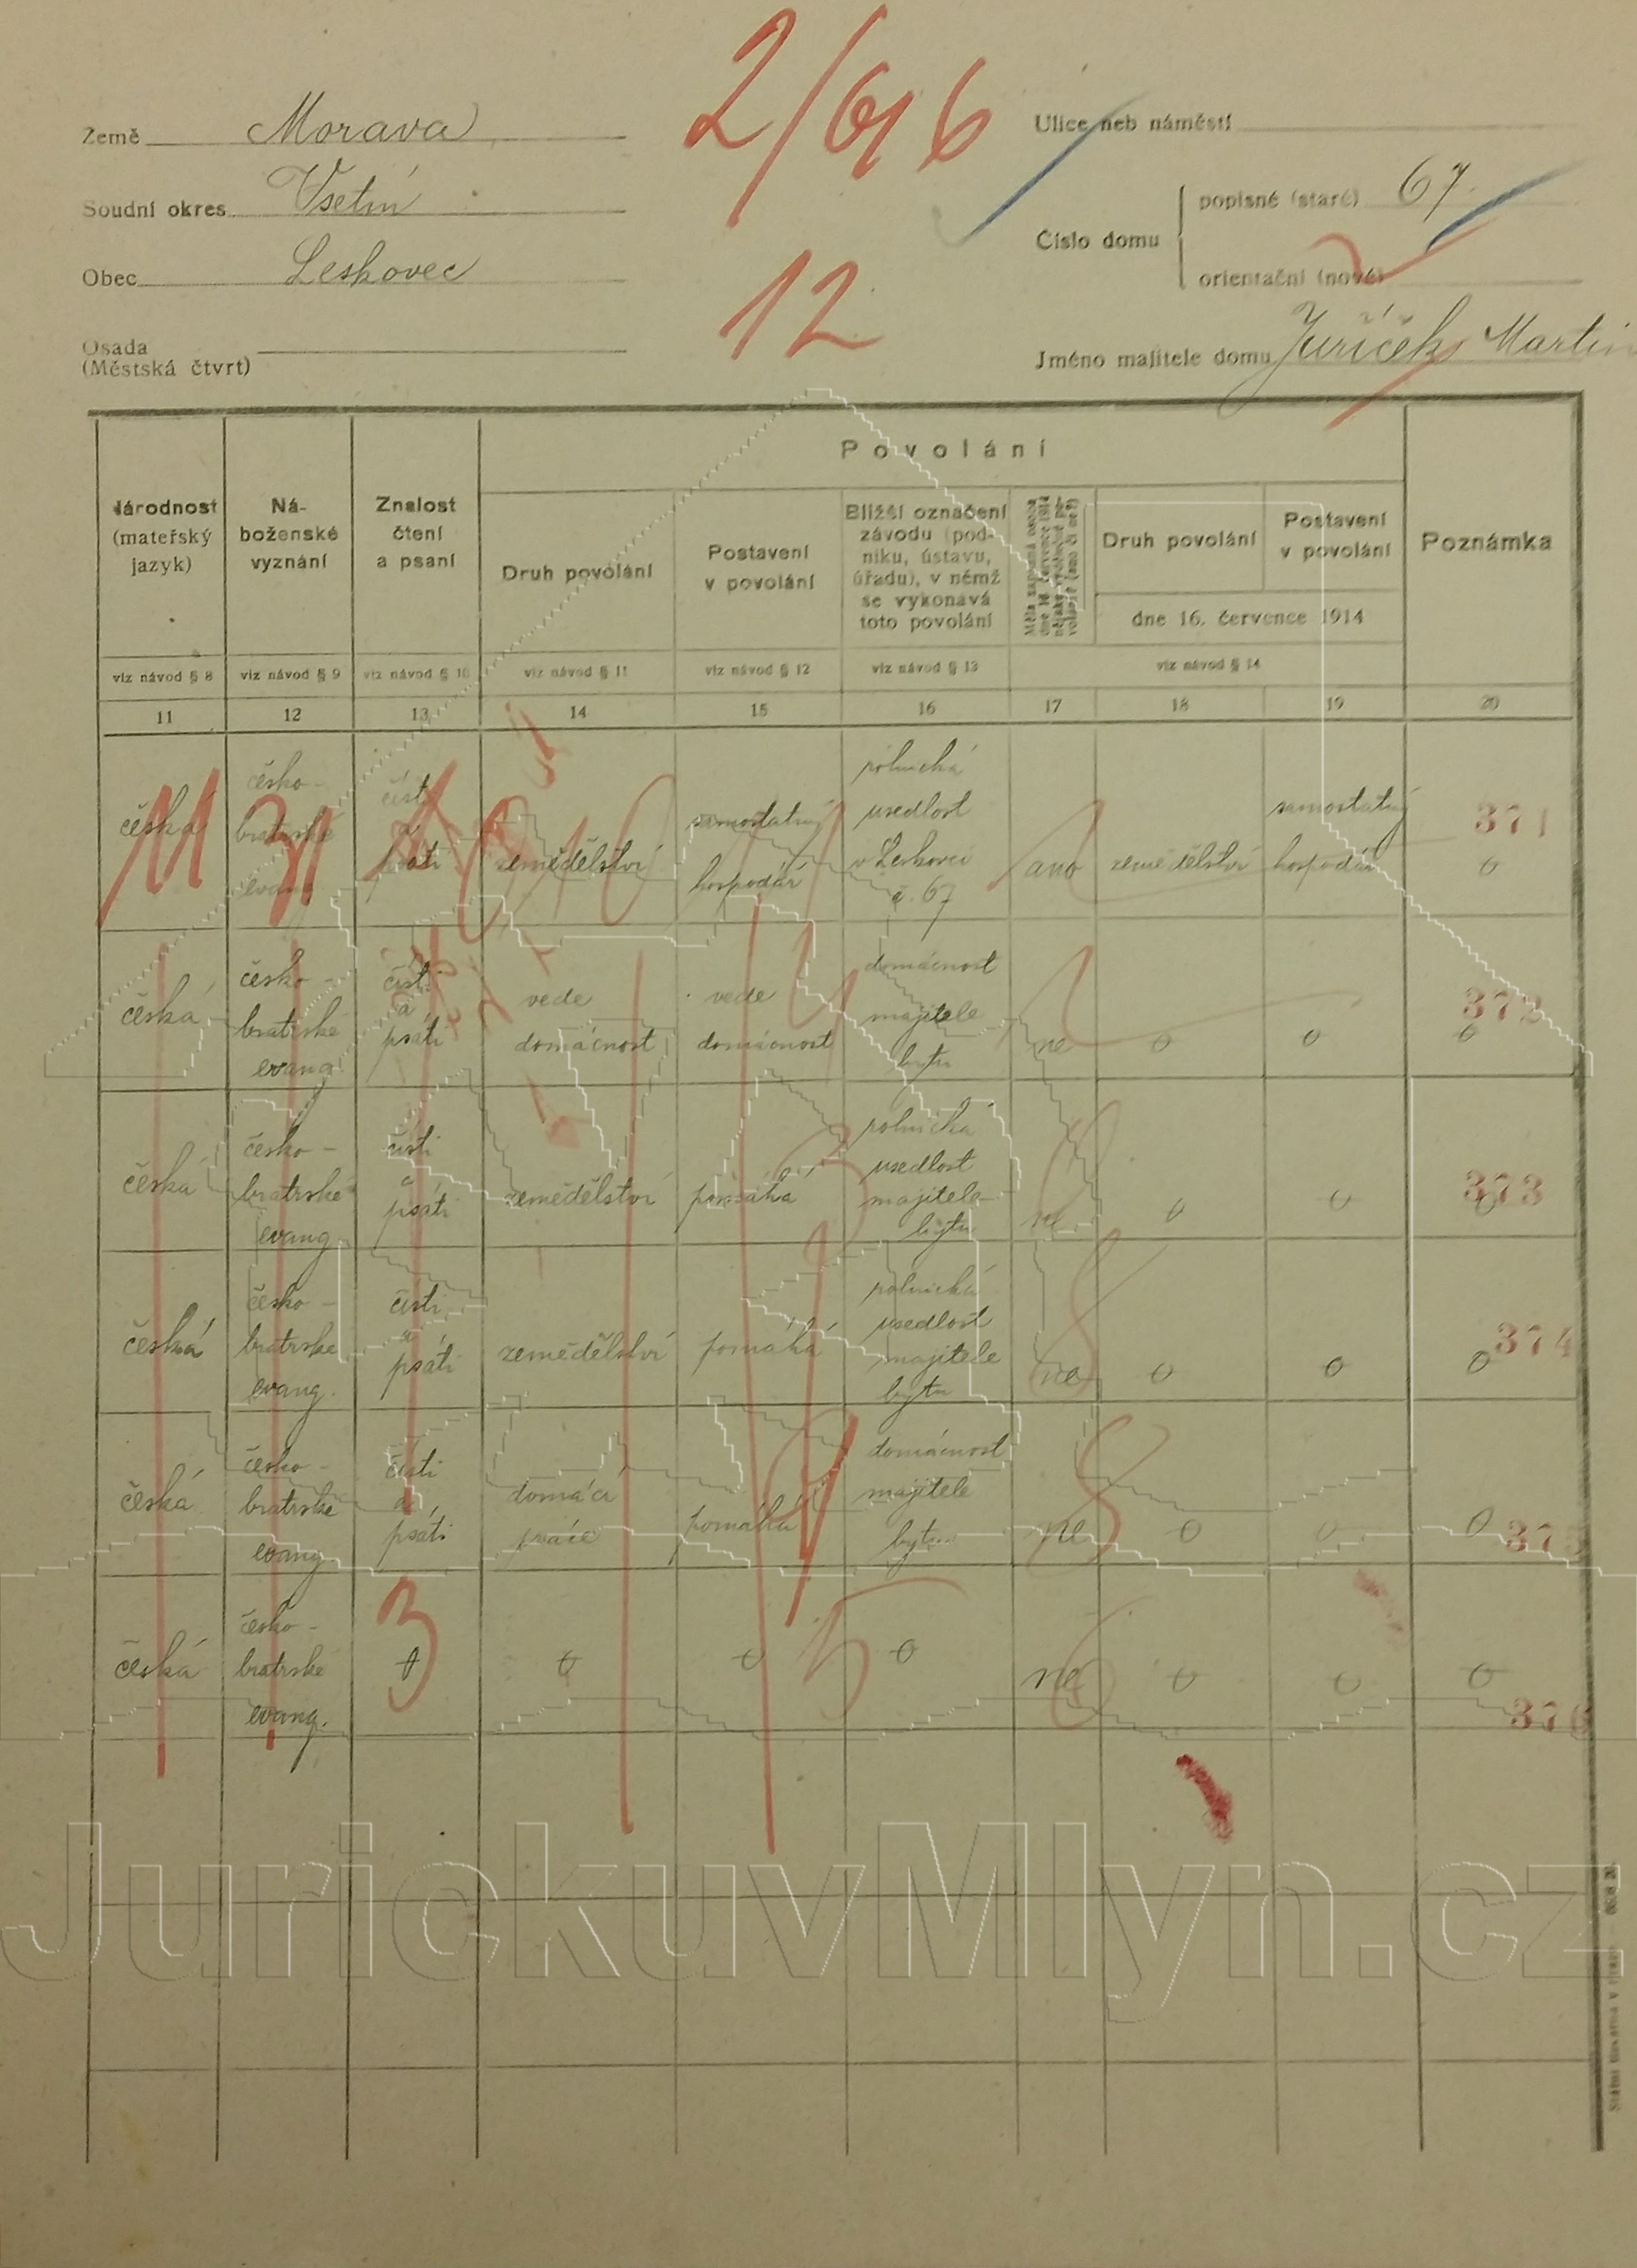 2/616
12
Země Morava
Soudní okres Vsetín
Obec Leskovec
Osada
(Městská čtvrt)
Ulice neb náměstí
Číslo domu
popisné (staré) 67
orientační (nové)
Jméno majitele domu Juříček Martin
Povolání
Národnost
(mateřský
jazyk)
Ná-
boženské
vyznání
Znalost
čtení
a psaní
Druh povolání
Postavení
v povolání
Bližší označení
závodu (pod-
niku, ústavu,
úřadu), v němž
se vykonává
toto povolání
Druh povolání
Postavení
v povolání
dne 16. července 1914
Poznámka
viz návod § 8
viz návod § 9
viz návod § 10
viz návod § 11
viz návod § 12
viz návod § 13
viz návod § 14
11 12 13 14 15 16 17 18 19 20
česká
česko-
bratrské
evang.
čísti
a
psáti
zemědělství
samostatný
hospodář
rolnická
usedlost
v Leskovci
č. 67
ano
zemědělství
samostatný
hospodář
371
0
česká
česko-
bratrské
evang.
čísti
a
psáti
vede
domácnost
vede
domácnost
domácnost
majitele
bytu
ne
0
0
372
0
česká
česko-
bratrské
evang.
čísti
a
psáti
zemědělství
pomáhá
rolnická
usedlost
majitele
bytu
ne
0
0
373
0
česká
česko-
bratrské
evang.
čísti
a
psáti
zemědělství
pomáhá
rolnická
usedlost
majitele
bytu
ne
0
0
374
0
česká
česko-
bratrské
evang.
čísti
a
psáti
domácí
práce
pomáhá
domácnost
majitele
bytu
ne
0
0
0
375
česká
česko-
bratrské
evang.
3
0
0
0
0
ne
0
0
0
376
JurickuvMlyn.cz